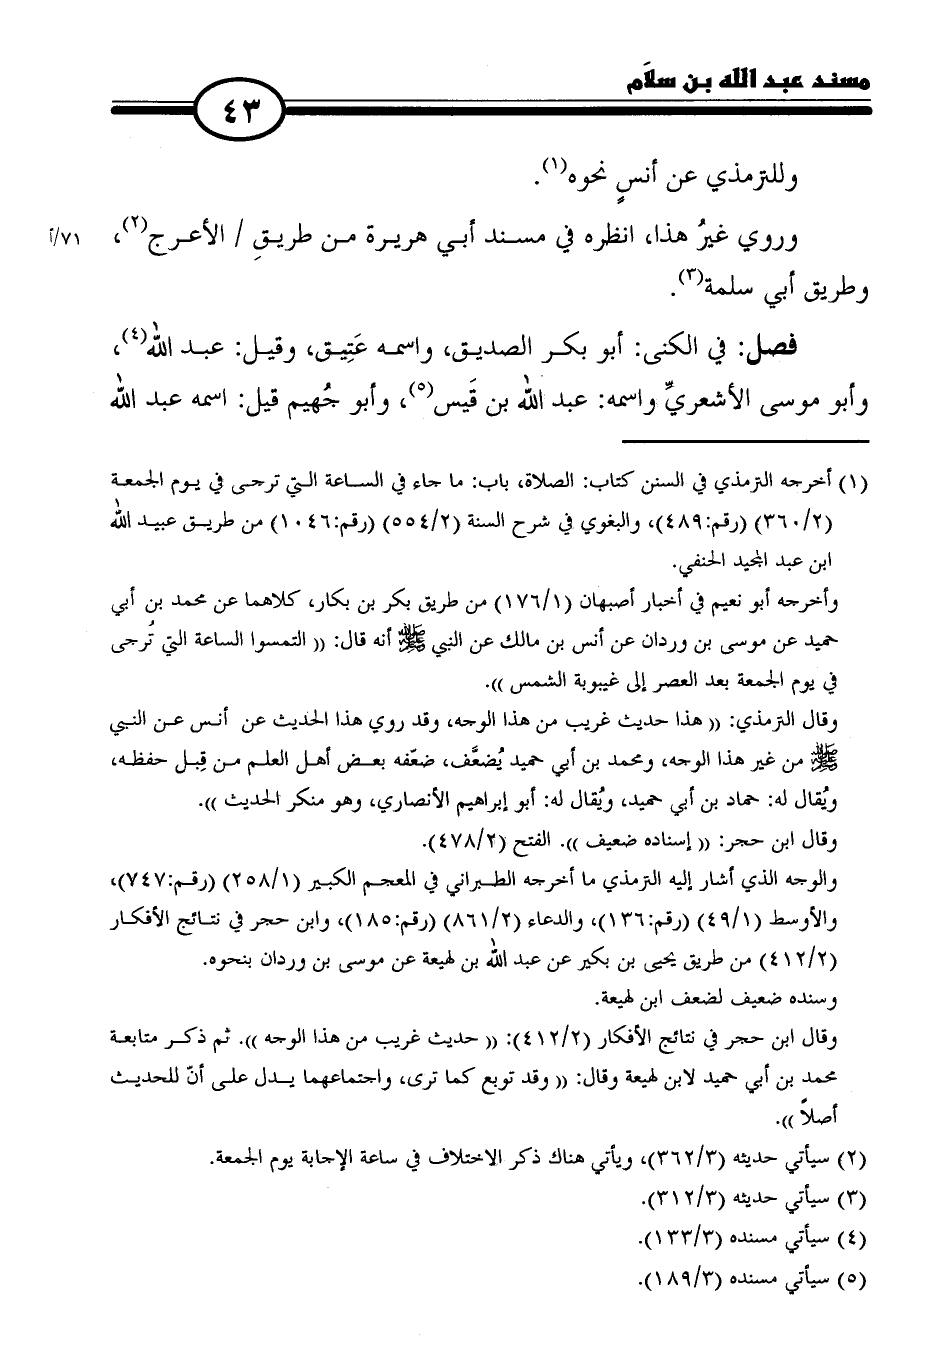 مسند عبد الله بن سلام
٤٣
وللترمذي عن أنسٍ نحوه(١).
وروي غيرُ هذا، انظره في مسند أبي هريرة من طريقِ / الأعرج(٢)،
٧١/أ
وطريق أبي سلمة(٣).
فصل: في الكنى: أبو بكر الصديق، واسمه عَتِيق، وقيل: عبد الله(٤)،
وأبو موسى الأشعريِّ واسمه: عبد الله بن قَيس(٥)، وأبو جُهيم قيل: اسمه عبد الله
(١) أخرجه الترمذي في السنن كتاب: الصلاة، باب: ما جاء في الساعة التي ترجى في يوم الجمعة
(٣٦٠/٢) (رقم:٤٨٩)، والبغوي في شرح السنة (٥٥٤/٢) (رقم:١٠٤٦) من طريق عبيد الله
ابن عبد المجيد الحنفي.
وأخرجه أبو نعيم في أخبار أصبهان (١٧٦/١) من طريق بكر بن بكار، كلاهما عن محمد بن أبي
حميد عن موسى بن وردان عن أنس بن مالك عن النبي ﷺ أنه قال: (( التمسوا الساعة التي تُرجى
في يوم الجمعة بعد العصر إلى غيبوبة الشمس )).
وقال الترمذي: (( هذا حديث غريب من هذا الوجه، وقد روي هذا الحديث عن أنس عن النبي
ﷺ من غير هذا الوجه، ومحمد بن أبي حميد يُضعَّف، ضعّفه بعض أهل العلم من قِبل حفظه،
ويُقال له: حماد بن أبي حميد، ويُقال له: أبو إبراهيم الأنصاري، وهو منكر الحديث )).
وقال ابن حجر: (( إسناده ضعيف )). الفتح (٤٧٨/٢).
والوجه الذي أشار إليه الترمذي ما أخرجه الطبراني في المعجم الكبير (٢٥٨/١) (رقم:٧٤٧)،
والأوسط (٤٩/١) (رقم:١٣٦)، والدعاء (٨٦١/٢) (رقم:١٨٥)، وابن حجر في نتائج الأفكار
(٤١٢/٢) من طريق يحيى بن بكير عن عبد الله بن لهيعة عن موسى بن وردان بنحوه.
وسنده ضعيف لضعف ابن لهيعة.
وقال ابن حجر في نتائج الأفكار (٤١٢/٢): (( حديث غريب من هذا الوجه )). ثم ذكر متابعة
محمد بن أبي حميد لابن لهيعة وقال: (( وقد توبع كما ترى، واجتماعهما يدل على أنّ للحديث
أصلاً )).
(٢) سيأتي حديثه (٣٦٢/٣)، ويأتي هناك ذكر الاختلاف في ساعة الإجابة يوم الجمعة.
(٣) سيأتي حديثه (٣١٢/٣).
(٤) سيأتي مسنده (١٣٣/٣).
(٥) سيأتي مسنده (١٨٩/٣).